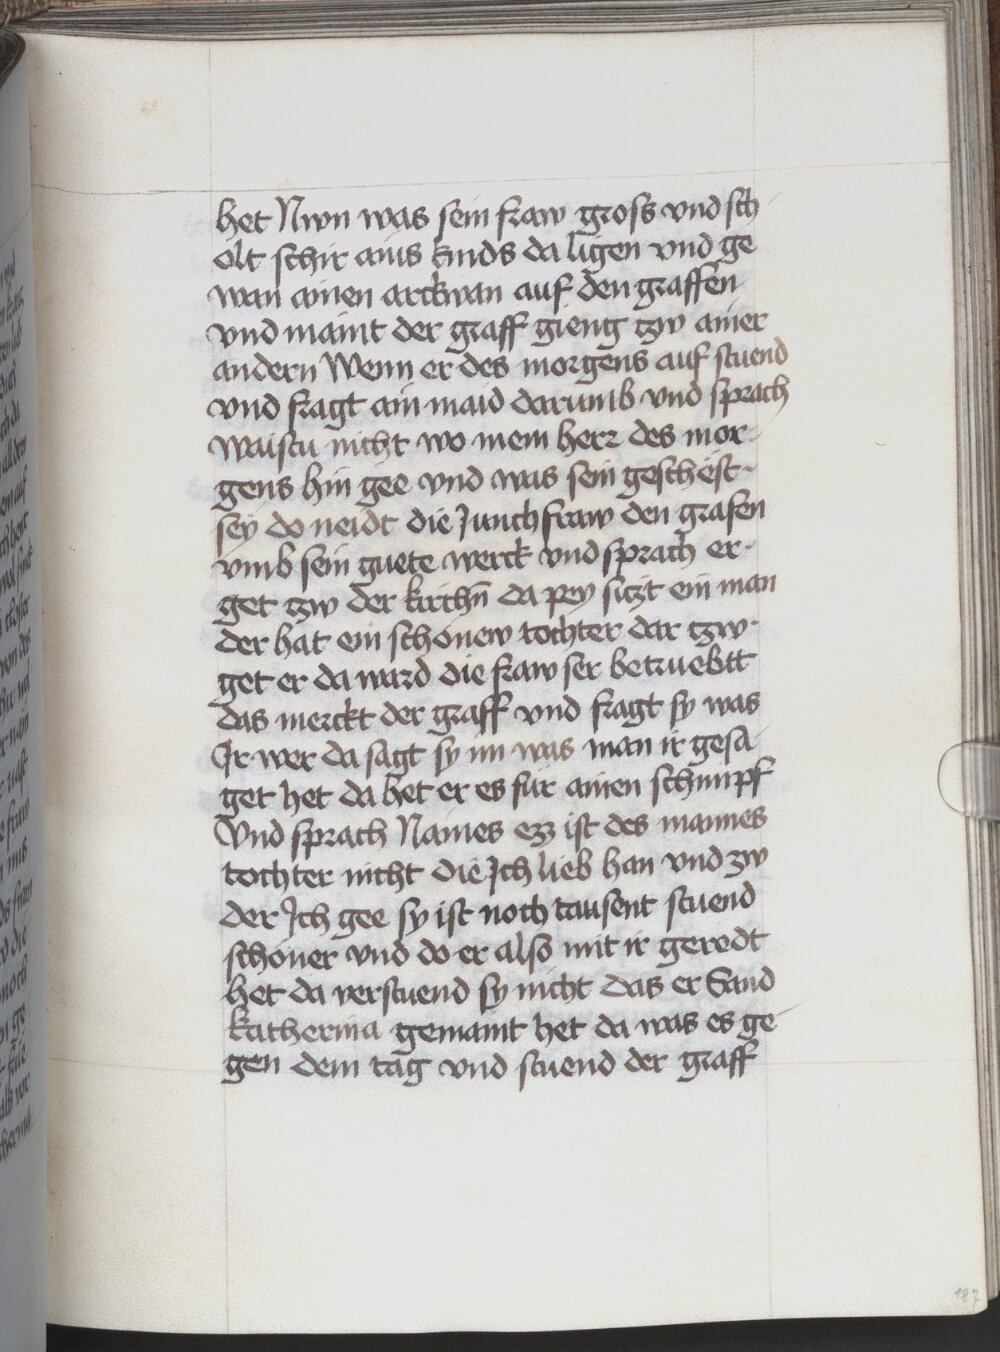 het Nwn was sein fraw gross vnd sch
olt schir ains kinds da ligen vnd ge
wan ainen arckwan auf den graffen
vnd maint der graff gieng tzw ainer
andern Wenn er des morgens auf stuend
vnd fragt ain maid darumb vnd sprach
waistu nicht wo mein herr des mor-
gens hin gee vnd was sein gescheft
sey do neidt die Junchfraw den grafen
vmb sein guete werck vnd sprach er
get tzw der kirchn̄ da pey siczt ein man
der hat ein schönew tochter dar tzw
get er da ward die fraw ser betruebtt
das merckt der graff vnd fragt sy was
Ir wer da sagt sy im was man ir gesa
get het da het er es für ainen schimpf
Vnd sprach Naines ez ist des mannes
tochter nicht die Ich lieb han vnd zw
der Ich gee sy ist noch tausent stuend
schöner vnd do er also mit ir geredt
het da verstuend sy nicht das er Sand
katherina gemaint het da was es ge
gen dem tag vnd stuend der graff
187